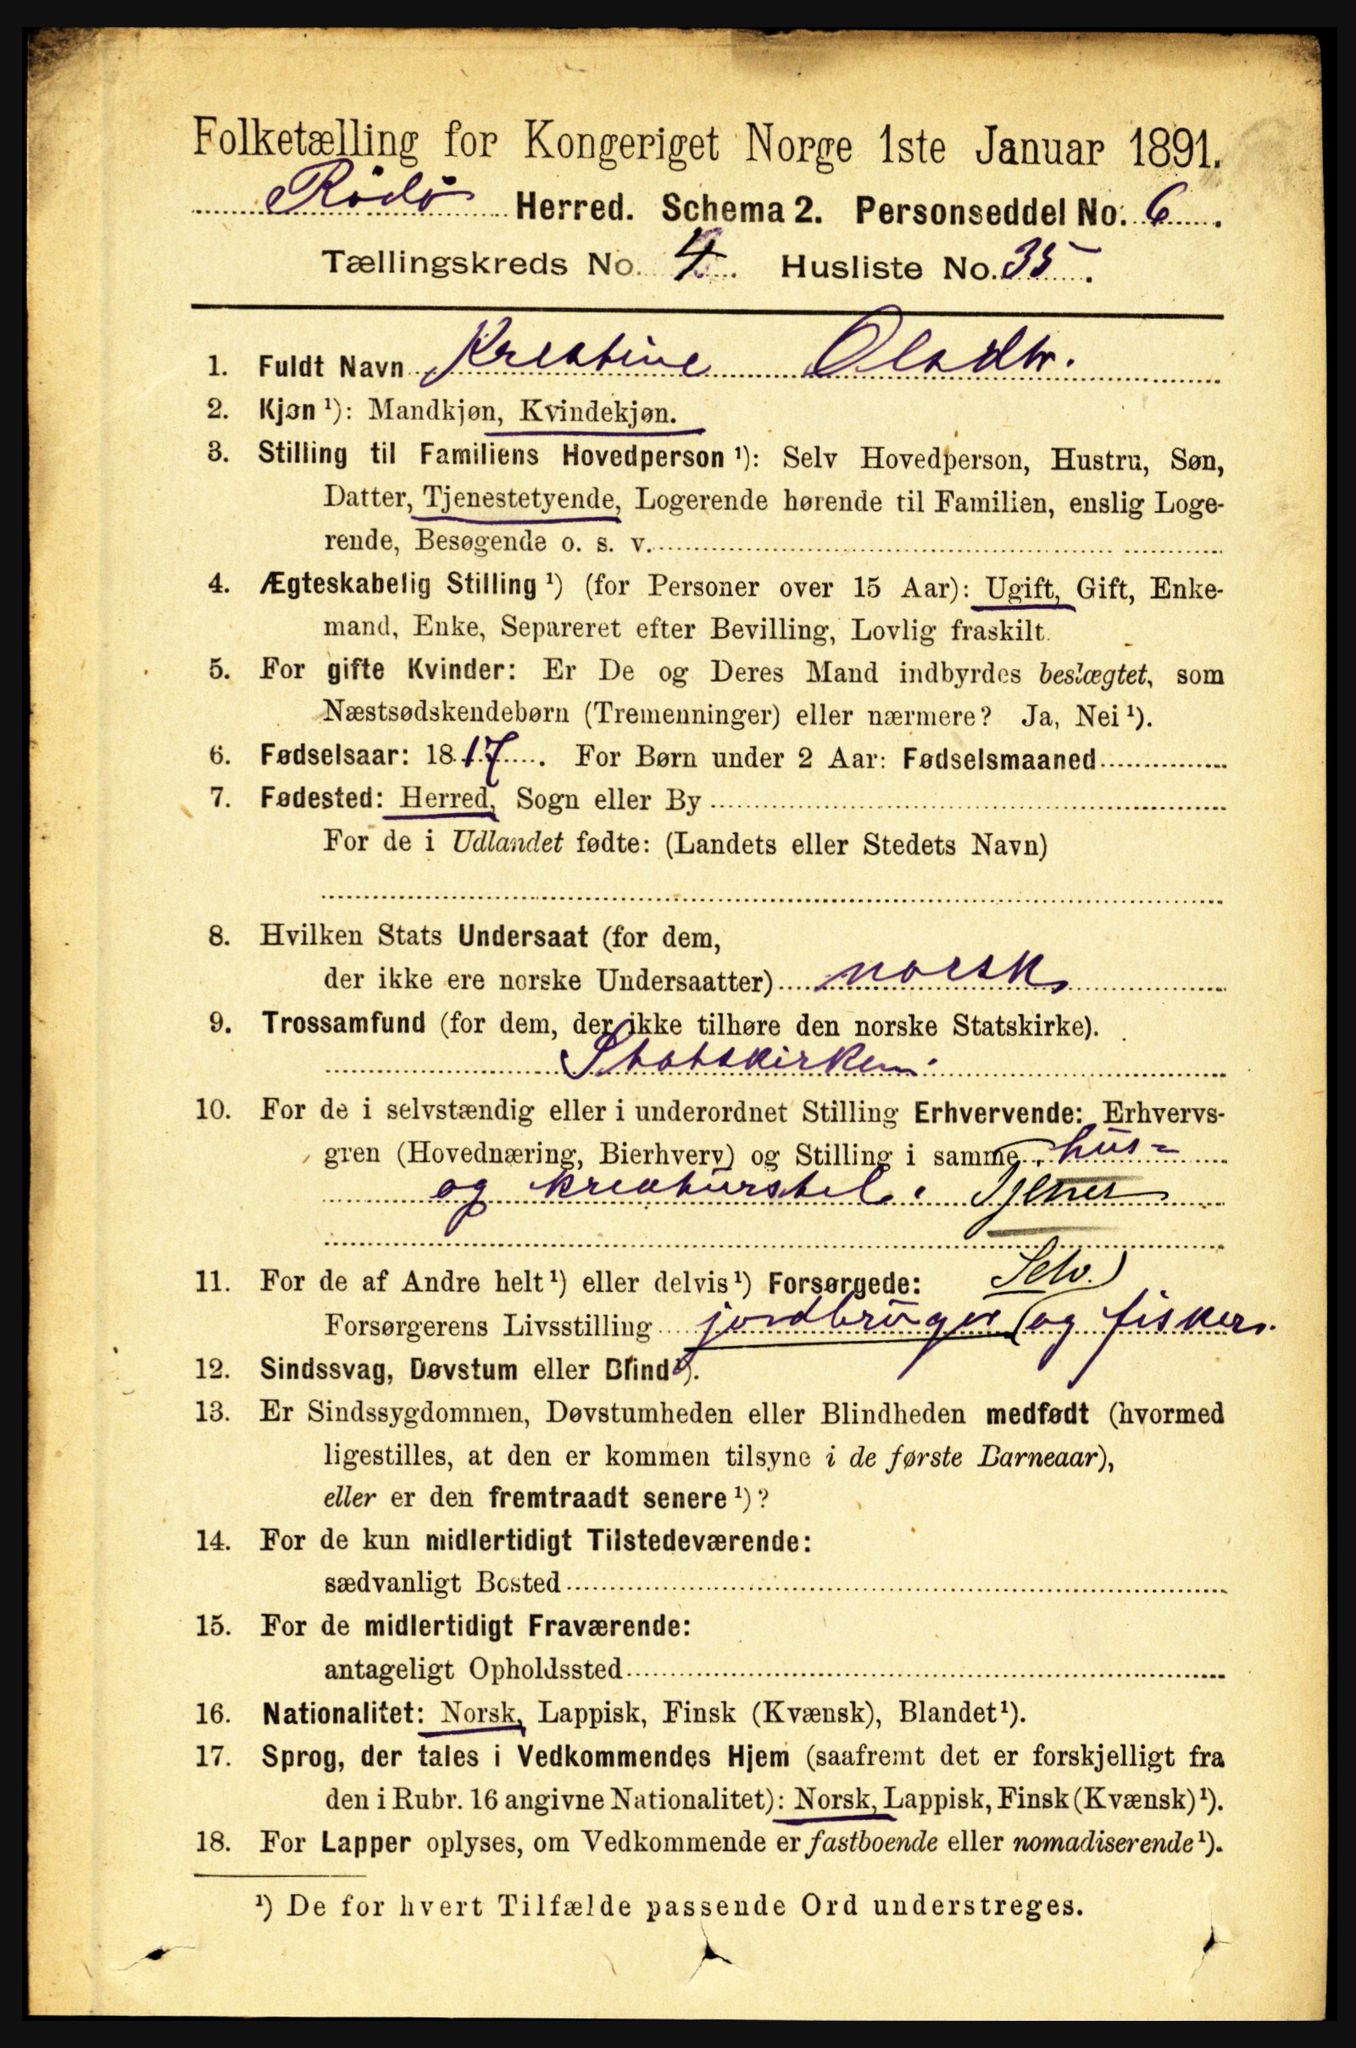 Folketælling for Kongeriget Norge 1ste Januar 1891.
Rödö Herred. Schema 2. Personseddel No. 6.
Tællingskreds No. 4. Husliste No. 35.
1. Fuldt Navn Krestine Olsdtr.
2. Kjøn ¹): Mandkjøn, Kvindekjøn.
3. Stilling til Familiens Hovedperson ¹): Selv Hovedperson, Hustru, Søn,
Datter, Tjenestetyende, Logerende hørende til Familien, enslig Loge-
rende, Besøgende o. s. v.
4. Ægteskabelig Stilling ¹) (for Personer over 15 Aar): Ugift, Gift, Enke-
mand, Enke, Separeret efter Bevilling, Lovlig fraskilt.
5. For gifte Kvinder: Er De og Deres Mand indbyrdes beslægtet, som
Næstsødskendebørn (Tremenninger) eller nærmere? Ja, Nei ¹).
6. Fødselsaar: 1817. For Børn under 2 Aar: Fødselsmaaned
7. Fødested: Herred, Sogn eller By
For de i Udlandet fødte: (Landets eller Stedets Navn)
8. Hvilken Stats Undersaat (for dem,
der ikke ere norske Undersaatter) norsk
9. Trossamfund (for dem, der ikke tilhøre den norske Statskirke).
Statskirken.
10. For de i selvstændig eller i underordnet Stilling Erhvervende: Erhvervs-
gren (Hovednæring, Bierhverv) og Stilling i samme. hus-
og kreaturstel. Tjener
11. For de af Andre helt ¹) eller delvis ¹) Forsørgede: Selv.)
Forsørgerens Livsstilling jordbruger (og fisker.
12. Sindssvag, Døvstum eller Blind ¹).
13. Er Sindssygdommen, Døvstumheden eller Blindheden medfødt (hvormed
ligestilles, at den er kommen tilsyne i de første Barneaar),
eller er den fremtraadt senere ¹)?
14. For de kun midlertidigt Tilstedeværende:
sædvanligt Bosted
15. For de midlertidigt Fraværende:
antageligt Opholdssted
16. Nationalitet: Norsk, Lappisk, Finsk (Kvænsk), Blandet ¹).
17. Sprog, der tales i Vedkommendes Hjem (saafremt det er forskjelligt fra
den i Rubr. 16 angivne Nationalitet): Norsk, Lappisk, Finsk (Kvænsk) ¹).
18. For Lapper oplyses, om Vedkommende er fastboende eller nomadiserende ¹).
¹) De for hvert Tilfælde passende Ord understreges.